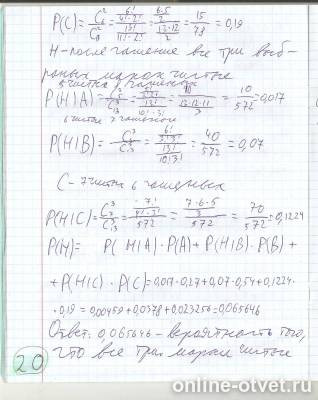 P(C) = C₆²/C₁₃² = (6!/(4!·2!))/(13!/(11!·2!)) = (6·5/2)/(13·12/2) = 15/78 = 0,19
H – после гашение все три выб-
раных марок чистые
5 чистых 8 гашеных
P(H|A) = C₅³/C₁₃³ = = 10/572 = 0,017
6 чистые 7 гашеных
P(H|B) = C₆³/C₁₃³ = (6!/(3!3!))/(13!/(10!3!)) = 40/572 = 0,07
C – 7 чистых 6 гашенных
P(H|C) = C₇³/C₁₃³ = (7!/(4!·3!))/572 = (7·6·5/3)/572 = 70/572 = 0,1224
P(H) = P(H|A)·P(A) + P(H|B)·P(B) +
+ P(H|C)·P(C) = 0,017·0,27 + 0,07·0,54 + 0,1224
·0,19 = 0,00459 + 0,0378 + 0,023256 = 0,065646
Ответ: 0,065646 – вероятность того,
что все три марки чистые
20
online-otvet.ru